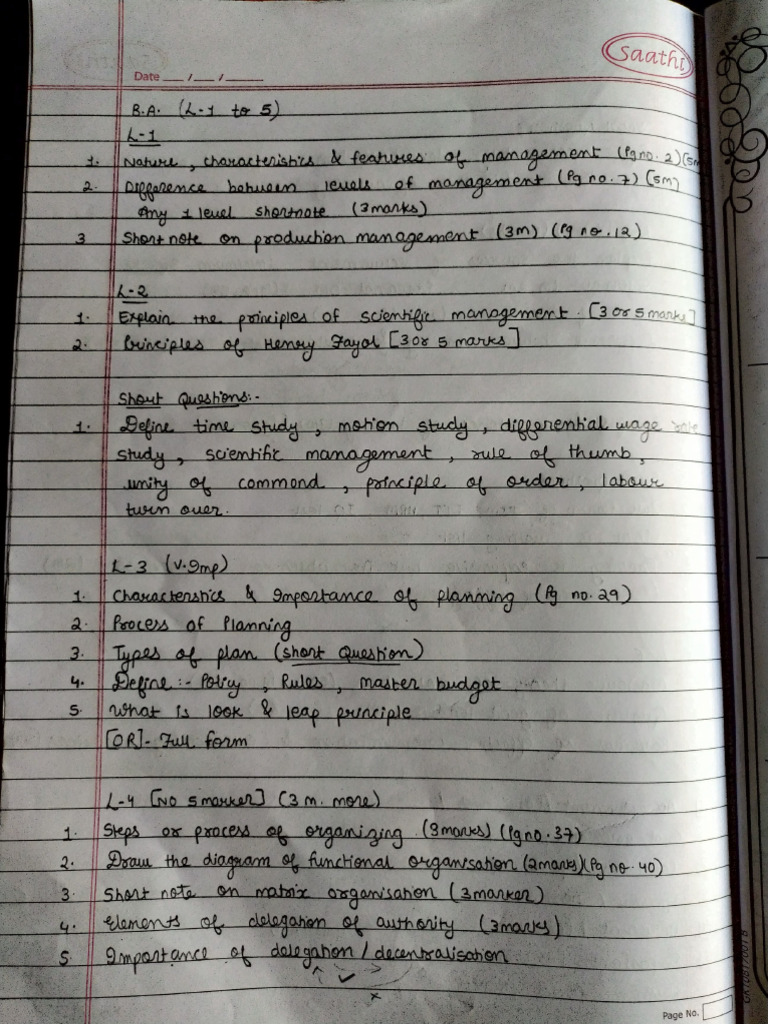 saathi
Date __/__/____
B.A. (L-1 to 5)
L-1
1. Nature, characteristics & features of management (Pg no. 2) (5m
2. Difference between levels of management (Pg no. 7) (5m)
Any 1 level shortnote (3marks)
3 Short note on production management (3m) (Pg no. 12)
L-2
1. Explain the principles of scientific management. [3 or 5 marks]
2. Principles of Henry Fayol [3 or 5 marks]
Short Questions:-
1. Define time study, motion study, differential wage rate
study, scientific management, rule of thumb,
unity of commond, principle of order, labour
turn over.
L-3 (V.Imp)
1. Characterstics & Importance of planning (Pg no. 29)
2. Process of Planning
3. Types of plan (short Question)
4. Define:- Policy, Rules, master budget
5. What is look & leap principle
[OR]- Full form
L-4 [No 5 marker] (3 m. more)
1. Steps or process of organizing (3marks) (Pg no. 37)
2. Draw the diagram of functional organisation (2marks) (Pg no. 40)
3. Short note on matrix organisation (3marker)
4. Elements of delegation of authority (3marks)
5. Importance of delegation / decentralisation
Page No.